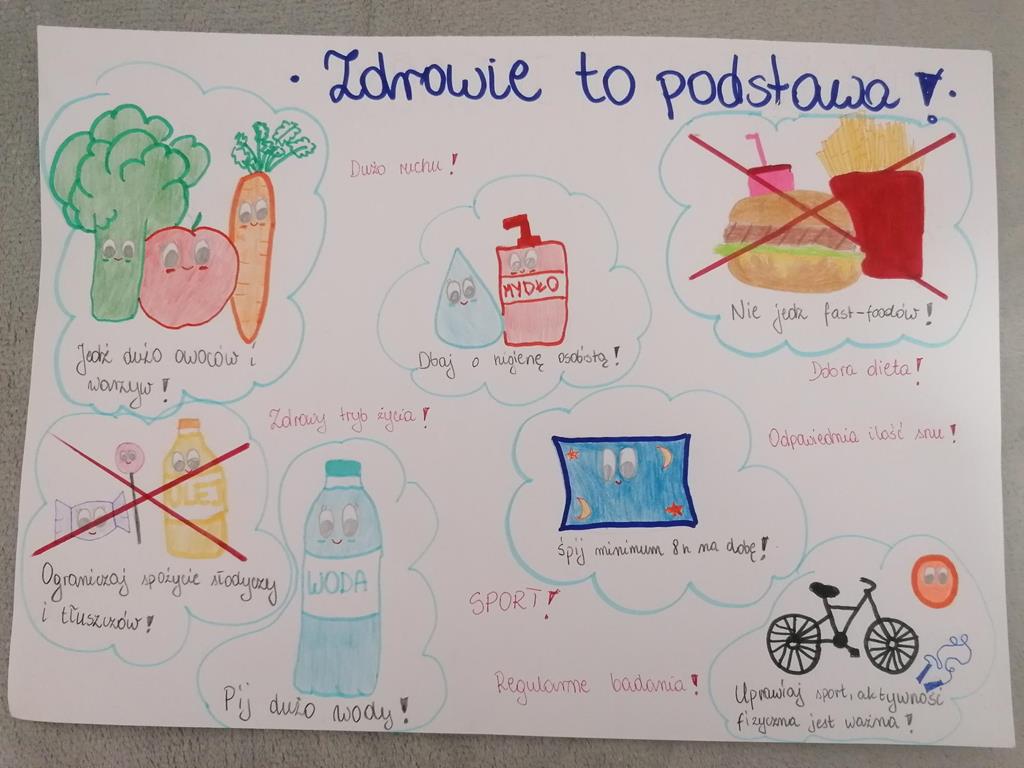 • Zdrowie to podstawa !•
Dużo ruchu !
Jedź dużo owoców i
warzyw !
MYDŁO
Dbaj o higienę osobistą !
Nie jedz fast-foodów !
Dobra dieta !
Zdrowy tryb życia !
Odpowiednia ilość snu !
OLEJ
Ograniczaj spożycie słodyczy
i tłuszczów !
WODA
Pij dużo wody !
Śpij minimum 8h na dobę !
SPORT !
Regularne badania !
Uprawiaj sport, aktywność
fizyczna jest ważna !